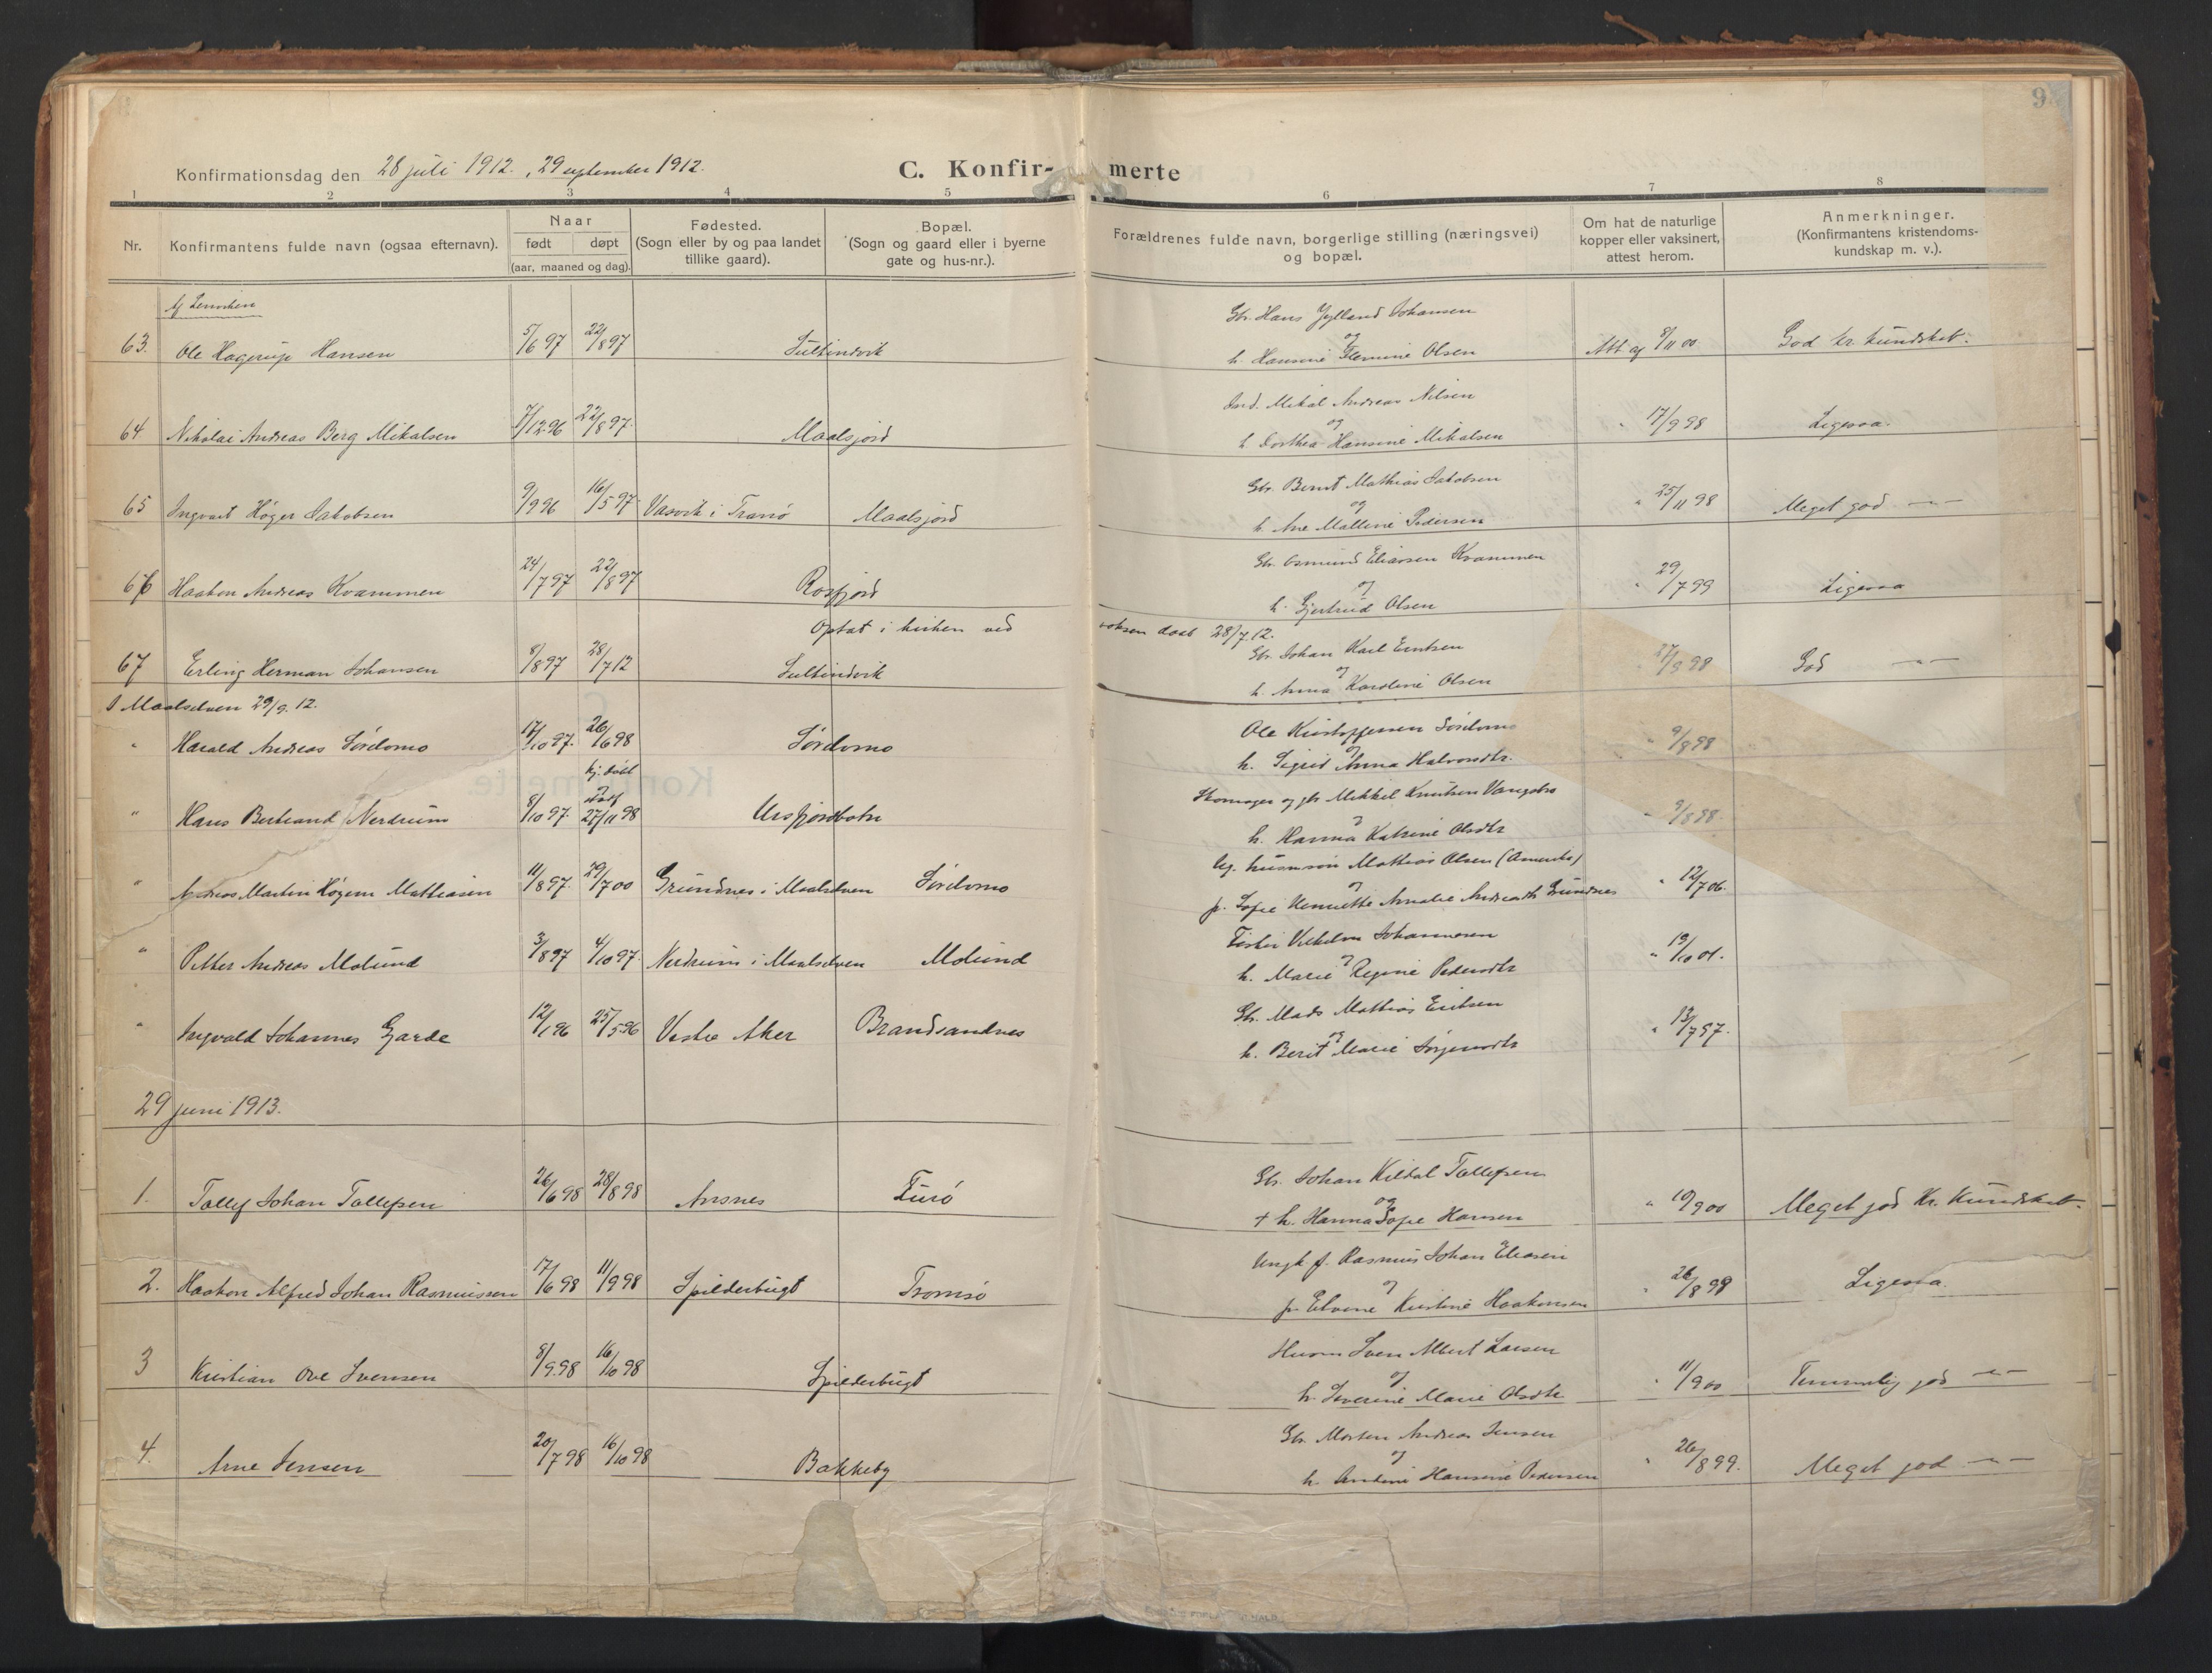 9
Konfirmationsdag den 28 juli 1912., 29 september 1912.
C. Konfir- merte
1 2 3 4 5 6 7 8
Nr.
Konfirmantens fulde navn (ogsaa efternavn).
Naar
født døpt
(aar, maaned og dag).
Fødested.
(Sogn eller by og paa landet
tillike gaard).
Bopæl.
(Sogn og gaard eller i byerne
gate og hus-nr.).
Forældrenes fulde navn, borgerlige stilling (næringsvei)
og bopæl.
Om hat de naturlige
kopper eller vaksinert,
attest herom.
Anmerkninger.
(Konfirmantens kristendoms-
kundskap m. v.).
Af Lenviken
Gbr. Hans Jylland Johansen
og
63. Ole Hagerup Hansen 5/6 97 22/8 97 Sultindvik h. Hansine Olsen Att af 8/11 00. God kr. kundskab.
Ind. Mikal Andreas Nilsen
og
64 Nikolai Andreas Berg Mikalsen 7/12 96 22/8 97. Maalsjord h. Dorthea Hansine Mikalsen " 17/9 98 Ligesaa.
Gbr. Bernt Mathias Jakobsen
og
65 Ingvart Høger Jakobsen 9/9 96 16/5 97 Vasvik i Tranø Maalsjord h. Ane Malline Pedersen " 25/11 98 Meget god —"—
Gbr. Osmund Eliassen Kvammen
og
66 Haakon Andreas Kvammen 24/7 97 22/8 97 Rosfjord h. Gjertrud Olsen " 29/7 99 Ligesaa
Optat i kirken ved voksen daab 28/7.12.
Gbr. Johan Karl Erntsen
og
67 Erling Herman Johansen 8/8 97 28/7 12 Sultindvik h. Anna Karoline Olsen " 27/9 98 God —"—
I Maalselven 29/9. 12.
Ole Kristoffersen Sørdomo
og
" Harald Andreas Sørdomo 17/10 97. 26/6 98 Sørdomo h. Sigrid Anna Halvorsdtr. " 9/8 98
hj. døbt
Skomager og gbr Mikkel Knutsen Vangsbo
og
" Hans Bertrand Nerdrum 8/10 97. 27/11 98 Ursfjordbotn h. Hanna Katrine Olsdtr " 9/8 98.
Ug. husmsøn Mathias Olsen (Amerika)
og
" Andreas Martin Høgem Mathiasen 11/8 97. 29/7 00 Grundnes i Maalselven Sørdomo p. Sofie Henriette Amalie Andreasdtr Grundnes " 12/7 06.
Vilhelm Johannesen
og
" Petter Andreas Molund 3/8 97 4/10 97. Nerdrum i Maalselven Molund h. Marie Regine Pedersdtr " 19/10 01.
Gbr. Mads Mathias Eriksen
og
" Ingvald Johannes Gjarde 12/1 96 25/5 96 Vestre Aker Brandsandnes h. Berit Marie " 13/7 97.
29 juni 1913.
Gbr. Johan Kildal Tollefsen
og
1. Tollef Johan Tollefsen 26/6 98 28/8 98 Ansnes Tusø + h. Hanna Sofie Hansen " 19/9 00 Meget god Kr. Kundskab.
Ungk f. Rasmus Johan Eliasen
og
2. Haakon Alfred Johan Rasmussen 17/6 98 11/9 98 Spilderbugt Tromsø p. Elvine Kristine Haakonsen " 26/8 99 Ligesaa.
Husm Sven Albert Larsen
og
3 Kristian Ove Svensen 8/9.98 16/10 98 Spilderbugt h. Severine Marie Olsdtr " 11/9 00 Temmelig god —"—
Gbr. Morten Andreas Jensen
og
4. Arne Jensen 20/7 98 16/10 98 Bakkeby h. Hansine Pedersen " 26/8 99. Meget god —"—